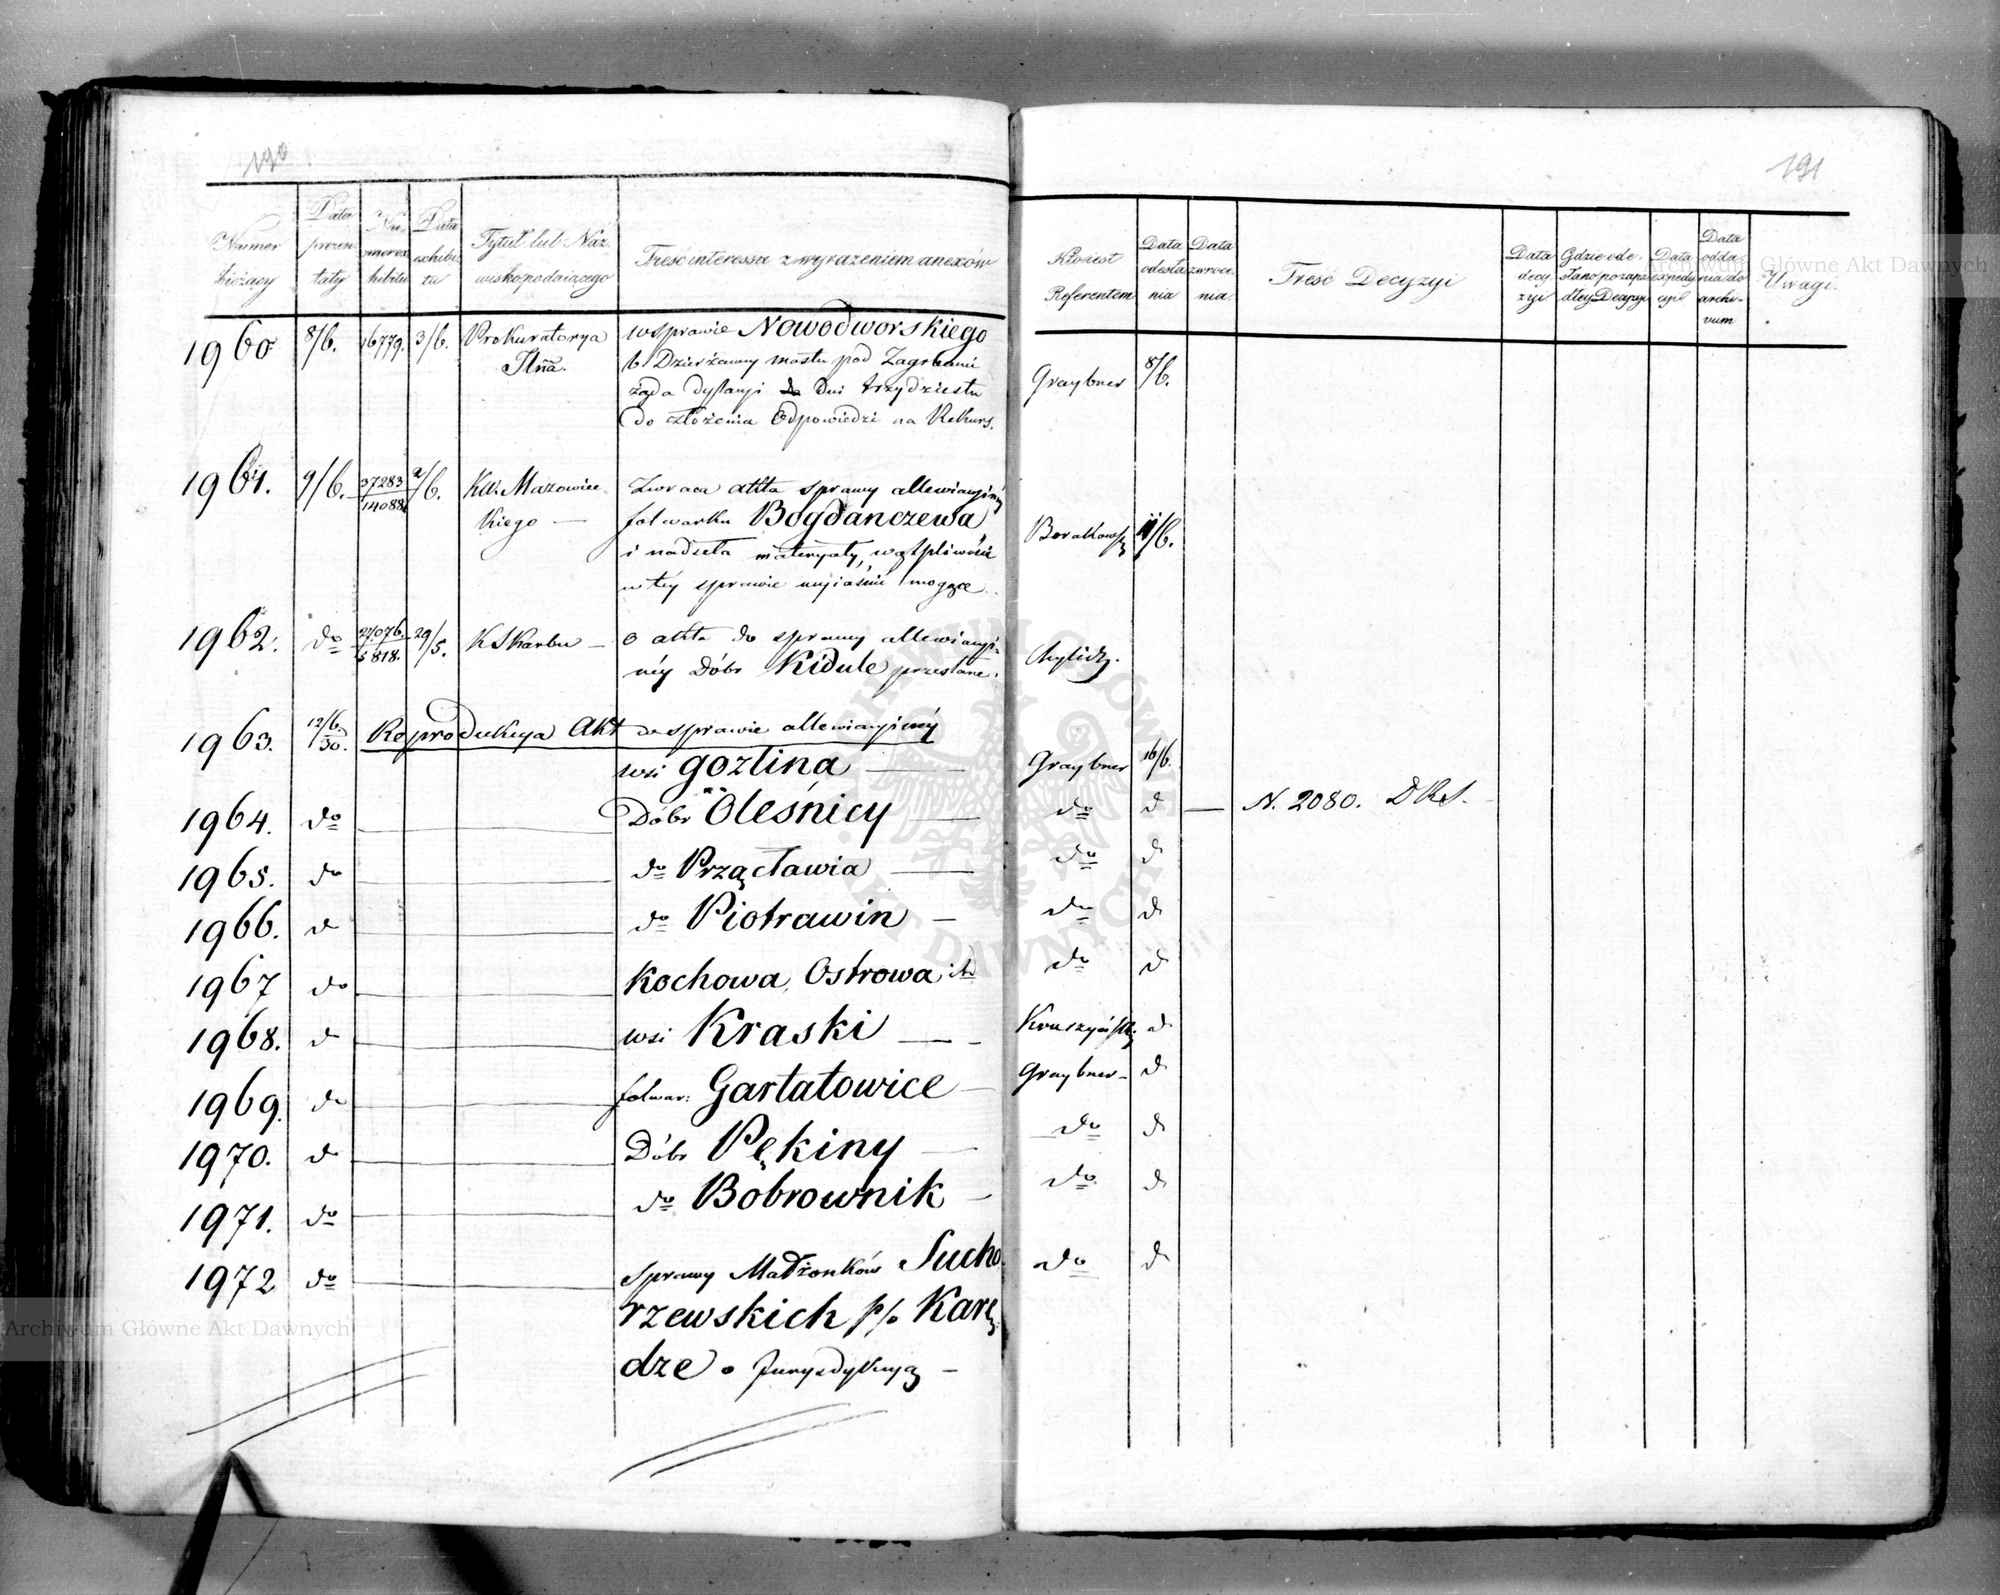 190
Numer bieżący
Data prezentaty
Numer exhibitu
Data exhibitu
Tytuł lub Nazwisko podaiącego
Treść interessu z wyrażeniem anexów
1960 8/6. 16779. 3/6. Prokuratorya w sprawie Nowodworskiego
b Dzierżawcy mostu pod
żąda dylacyi do Dni trzydziestu
do złożenia Odpowiedzi na Rekurs.
1961. 9/6. 37283/14088 2/6. Kom: Mazowiec- Zwraca akta sprawy allewiacyjnéy
kiego — folwarku Bogdańczewa
i nadseła materyały, wątpliwości
w téy sprawie wyjaśnić mogące.
1962. do 27076./5818. 29/5. K S Karbu — o akta do sprawy allewiacyi-
néy Dóbr Kidule przesłane.
1963. 12/6. 30. Reprodukcya Akt w sprawie allewiacyinéy
wsi Gozlina —
1964. do Dóbr Oleśnicy —
1965. do do Przącławia —
1966. d do Piotrawin —
1967 do Kochowa, Ostrowa
1968. d wsi Kraski —
1969. d folwar: Gartatowice —
1970. d Dóbr Pękiny —
1971. do do Bobrownik —
1972 do sprawy Małżonków Sucho
rzewskich p/o Karę
dze o Juryzdykcyą —
191
Kto iest Referentem
Data odesłania
Data zwrocenia.
Treść Decyzyi
Data decyzyi
Gdzie odesłano po zapadłey Decyzyi
Data expedycyi
Data oddania do archivum
Uwagi.
Graybner 8/6.
11/6.
Graybner 16/6.
do d — N. 2080. D K S.
do d
do d
do d
d
Graybner — d
do d
do d
do d
Archiwum Główne Akt Dawnych
Archiwum Główne Akt Dawnych
ARCHIWUM GŁÓWNE AKT DAWNYCH